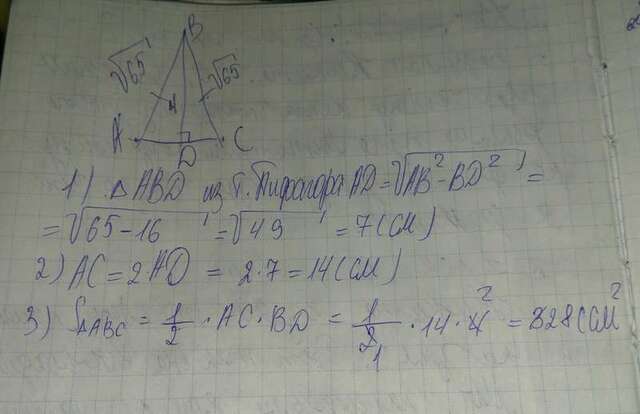 B
√65 √65
4
A C
D
1) △ABD из т. Пифагора AD=√AB²-BD² =
=√65-16 =√49 =7(см)
2) AC=2AD = 2·7=14(см)
3) S△ABC = 1/2 ·AC·BD = 1/2 1 ·14·4 2 = 28(см²